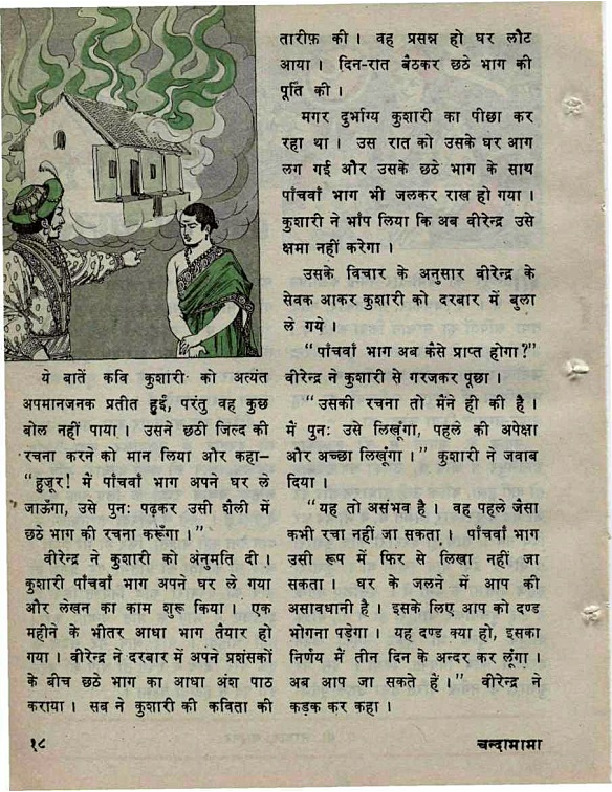 ये बातें कवि कुशारी को अत्यंत
अपमानजनक प्रतीत हुईं, परंतु वह कुछ
बोल नहीं पाया । उसने छठी जिल्द की
रचना करने को मान लिया और कहा–
“हुजूर! मैं पाँचवाँ भाग अपने घर ले
जाऊँगा, उसे पुनः पढ़कर उसी शैली में
छठे भाग की रचना करूँगा ।”
वीरेन्द्र ने कुशारी को अनुमति दी ।
कुशारी पाँचवाँ भाग अपने घर ले गया
और लेखन का काम शुरू किया । एक
महीने के भीतर आधा भाग तैयार हो
गया । वीरेन्द्र ने दरबार में अपने प्रशंसकों
के बीच छठे भाग का आधा अंश पाठ
कराया । सब ने कुशारी की कविता की
तारीफ़ की । वह प्रसन्न हो घर लौट
आया । दिन-रात बैठकर छठे भाग की
पूर्ति की ।
मगर दुर्भाग्य कुशारी का पीछा कर
रहा था । उस रात को उसके घर आग
लग गई और उसके छठे भाग के साथ
पाँचवाँ भाग भी जलकर राख हो गया ।
कुशारी ने भांप लिया कि अब वीरेन्द्र उसे
क्षमा नहीं करेगा ।
उसके विचार के अनुसार वीरेन्द्र के
सेवक आकर कुशारी को दरबार में बुला
ले गये ।
“पाँचवाँ भाग अब कैसे प्राप्त होगा?”
वीरेन्द्र ने कुशारी से गरजकर पूछा ।
“उसकी रचना तो मैंने ही की है ।
मैं पुनः उसे लिखूंगा, पहले की अपेक्षा
और अच्छा लिखूंगा ।” कुशारी ने जवाब
दिया ।
“यह तो असंभव है । वह पहले जैसा
कभी रचा नहीं जा सकता । पाँचवाँ भाग
उसी रूप में फिर से लिखा नहीं जा
सकता । घर के जलने में आप की
असावधानी है । इसके लिए आप को दण्ड
भोगना पड़ेगा । यह दण्ड क्या हो, इसका
निर्णय मैं तीन दिन के अन्दर कर लूँगा ।
अब आप जा सकते हैं ।” वीरेन्द्र ने
कड़क कर कहा ।
१८
चन्दामामा